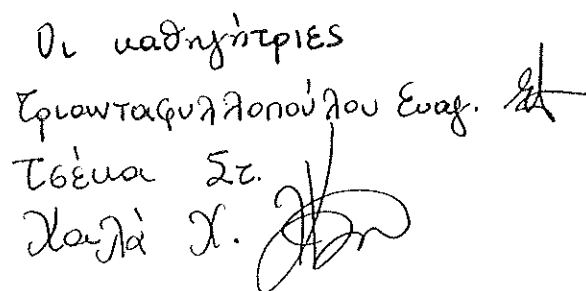 Οι καθηγήτριες
Τριανταφυλλοπούλου Ευαγ.
Τσέκα Στ.
Χαϊλά Χ.